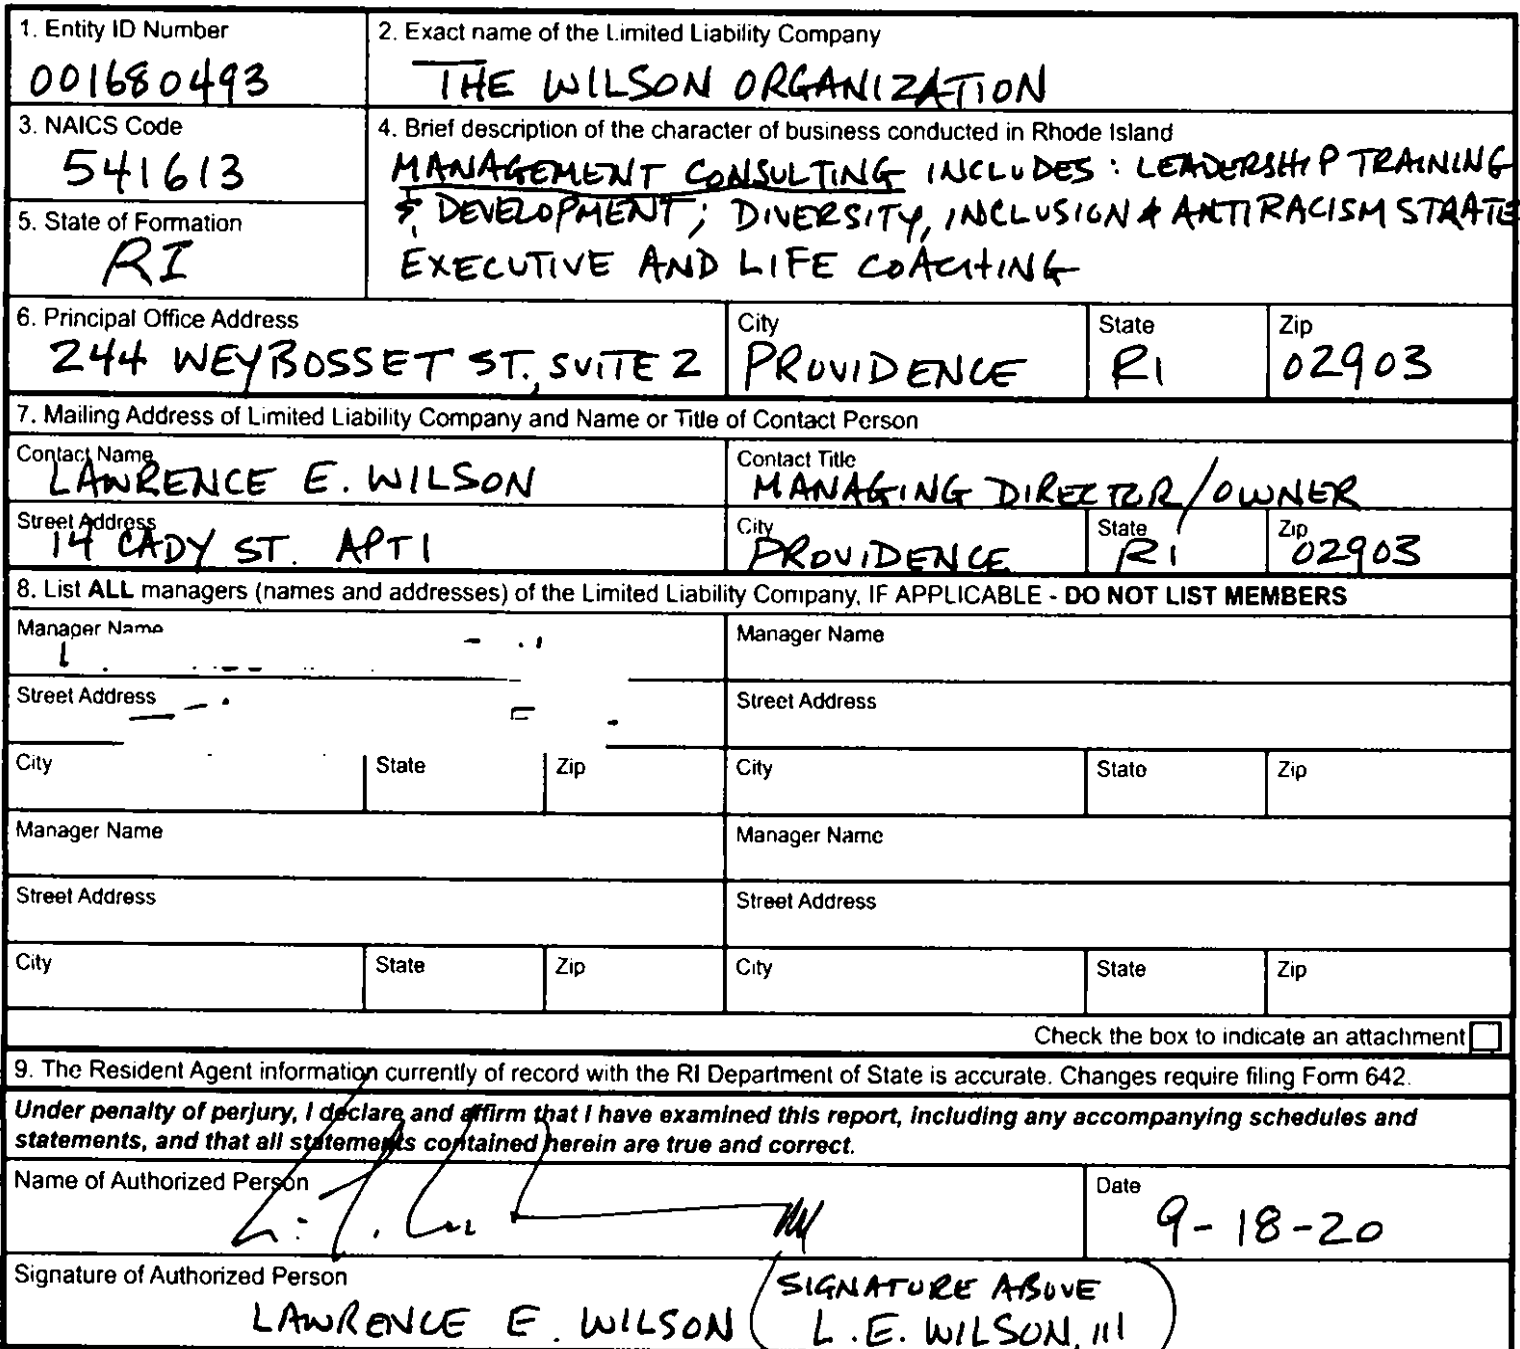 1. Entity ID Number
001680493
2. Exact name of the Limited Liability Company
THE WILSON ORGANIZATION
3. NAICS Code
541613
4. Brief description of the character of business conducted in Rhode Island
MANAGEMENT CONSULTING INCLUDES: LEADERSHIP TRAINING
& DEVELOPMENT; DIVERSITY, INCLUSION & ANTIRACISM STRATE
EXECUTIVE AND LIFE COACHING
5. State of Formation
RI
6. Principal Office Address
244 WEYBOSSET ST., SUITE 2
City
PROVIDENCE
State
RI
Zip
02903
7. Mailing Address of Limited Liability Company and Name or Title of Contact Person
Contact Name
LAWRENCE E. WILSON
Contact Title
MANAGING DIRECTOR/OWNER
Street Address
14 CADY ST. APT 1
City
PROVIDENCE
State
RI
Zip
02903
8. List ALL managers (names and addresses) of the Limited Liability Company, IF APPLICABLE - DO NOT LIST MEMBERS
Manager Name
Manager Name
Street Address
Street Address
City
State
Zip
City
State
Zip
Manager Name
Manager Name
Street Address
Street Address
City
State
Zip
City
State
Zip
Check the box to indicate an attachment
9. The Resident Agent information currently of record with the RI Department of State is accurate. Changes require filing Form 642.
Under penalty of perjury, I declare and affirm that I have examined this report, including any accompanying schedules and
statements, and that all statements contained herein are true and correct.
Name of Authorized Person
Date
9-18-20
Signature of Authorized Person
LAWRENCE E. WILSON
(SIGNATURE ABOVE
L.E. WILSON, III)